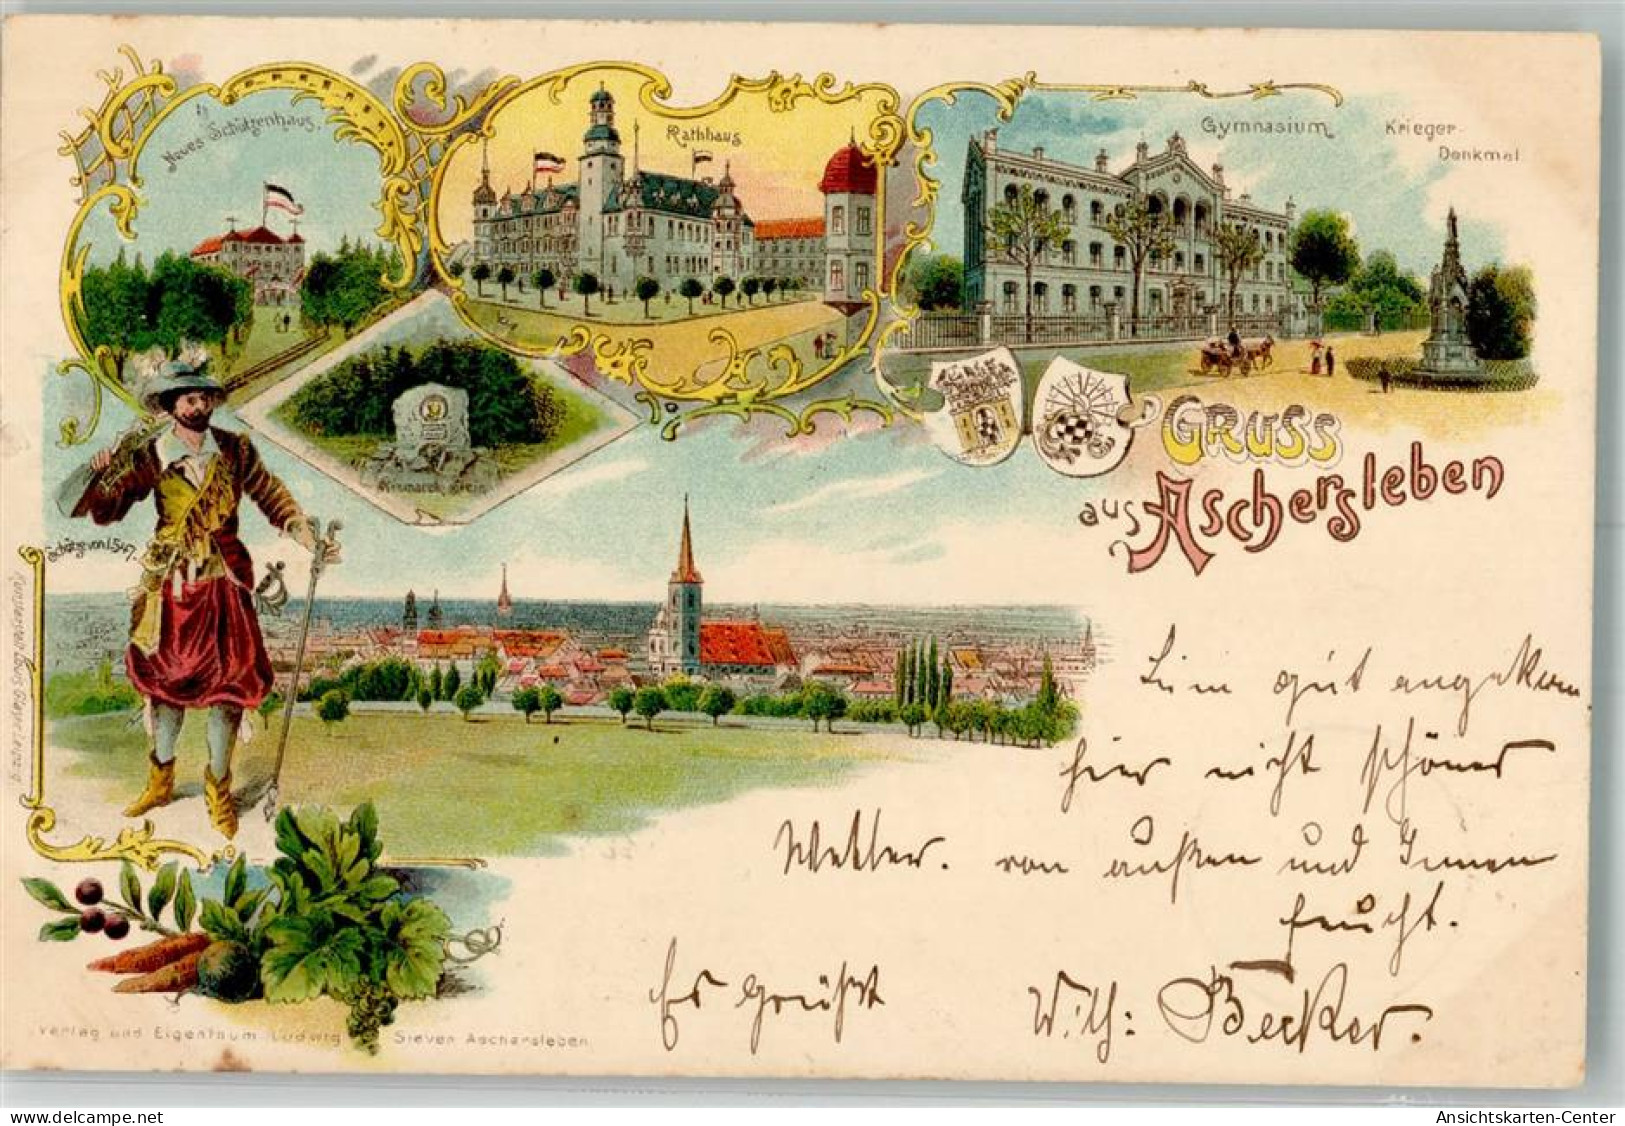 Neues Schützenhaus.
Rathhaus
Gymnasium
Krieger-
Denkmal
Bismarck Stein
Schütze von 1547.
GRUSS
aus Aschersleben
Kunstverlag Louis Glaser, Leipzig
Bin gut angekom
hier nicht schönes
Wetter. von außen und Innen
feucht.
Es grüßt Wilh: Becker.
Verlag und Eigenthum Ludwig Siever Aschersleben
Ansichtskarten-Center